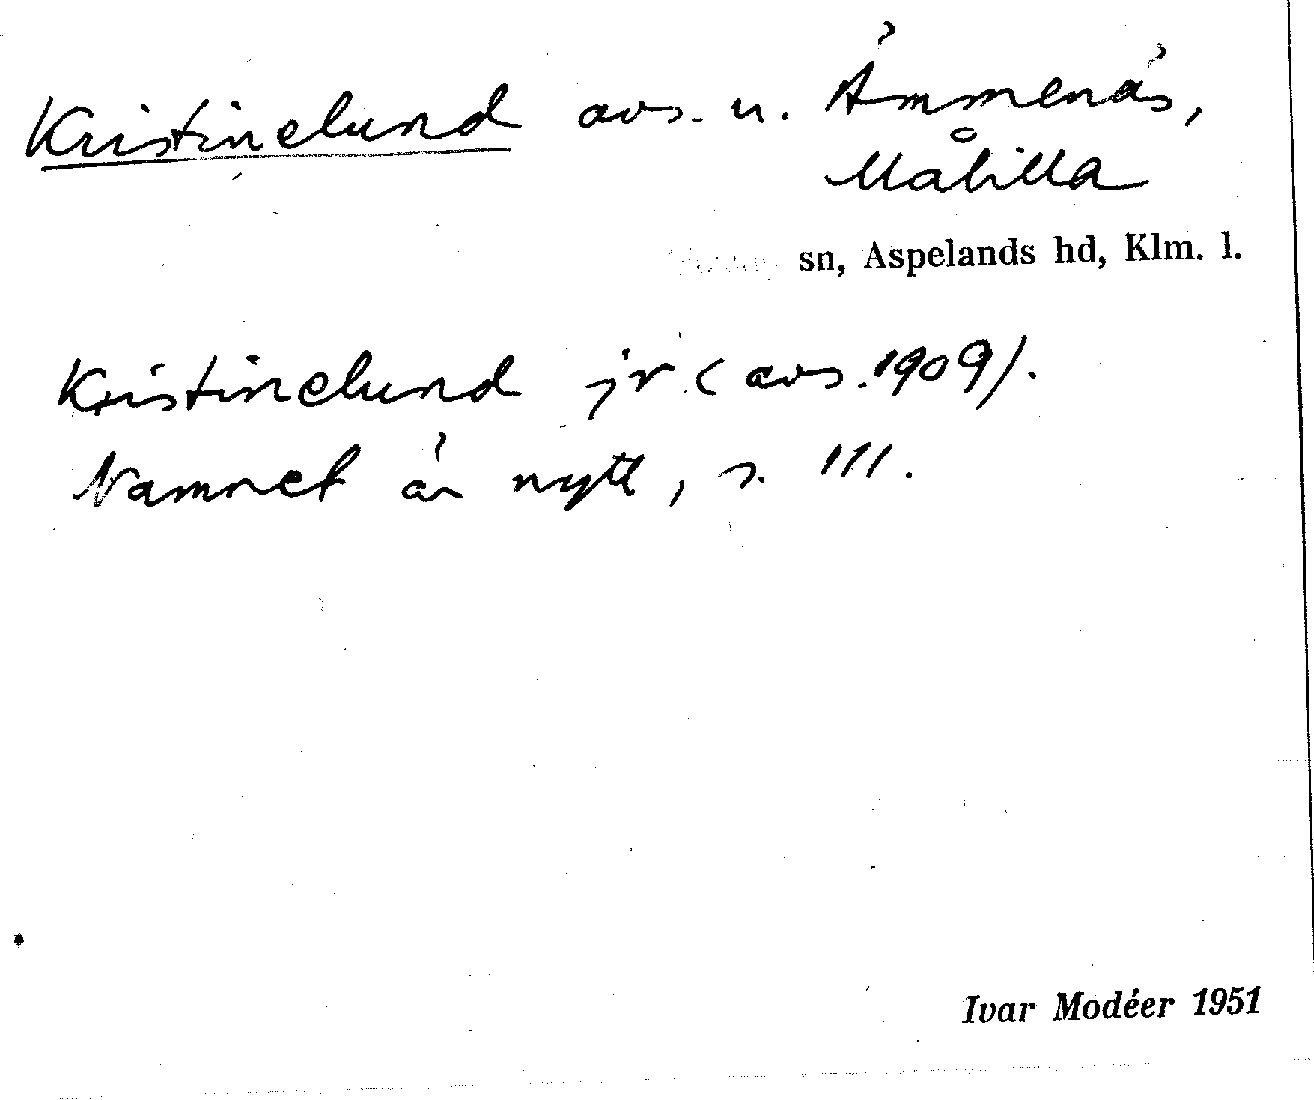 Kristinelund avs. u. Ämmenäs,
Målilla
sn, Aspelands hd, Klm. l.
Kristinelund jr (avs. 1909).
Namnet är nytt, s. 111.
Ivar Modéer 1951